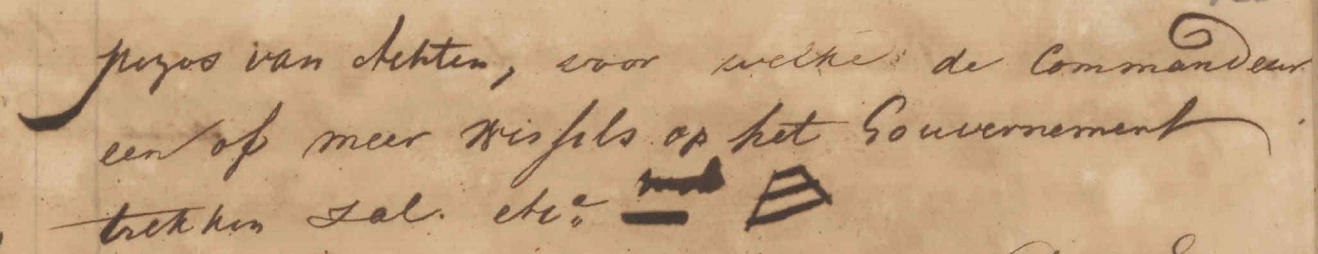 pezos van Achten, voor welke de Commandeur
een of meer Wissels op het Gouvernement
trekken zal. etc.